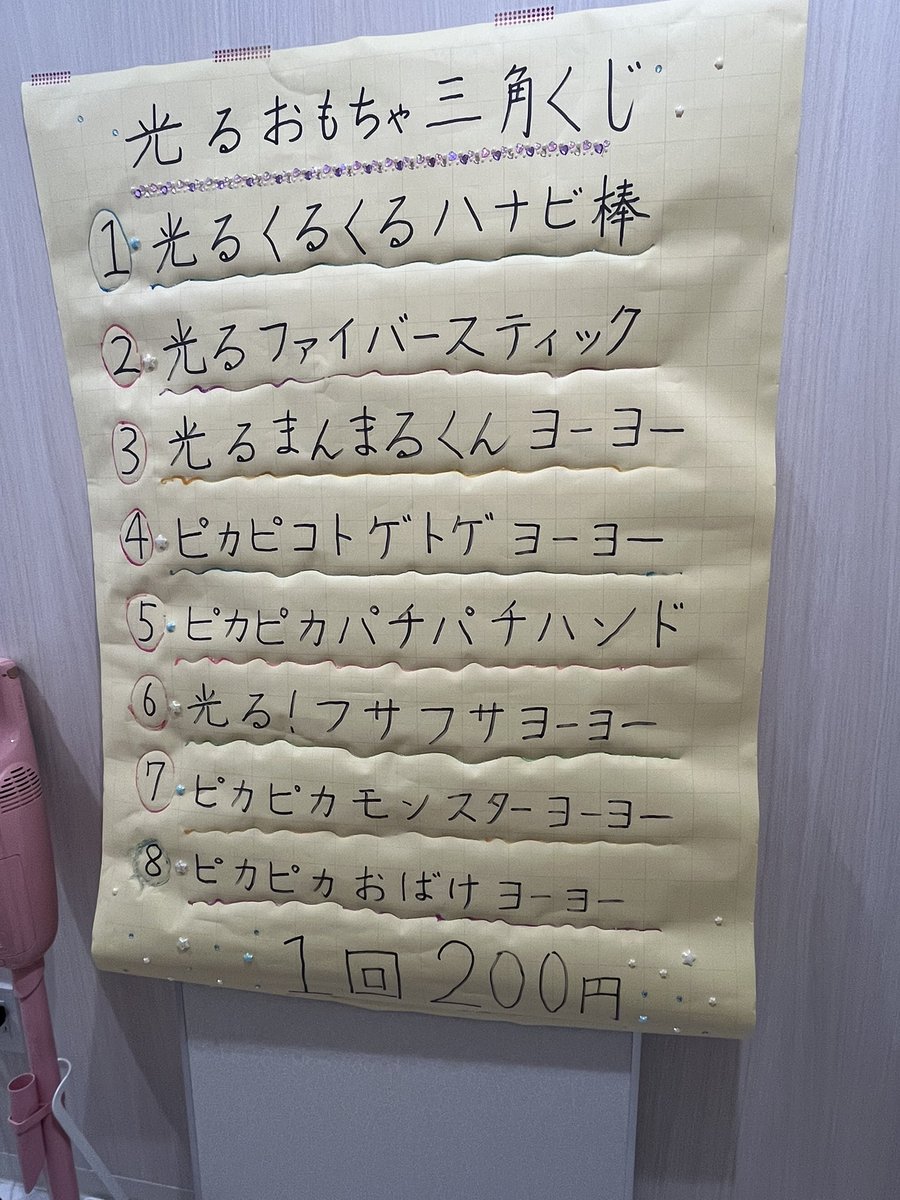 光るおもちゃ三角くじ
① 光るくるくるハナビ棒
② 光るファイバースティック
③ 光るまんまるくんヨーヨー
④ ピカピコトゲトゲヨーヨー
⑤ ピカピカパチパチハンド
⑥ 光る!フサフサヨーヨー
⑦ ピカピカモンスターヨーヨー
⑧ ピカピカおばけヨーヨー
1回200円